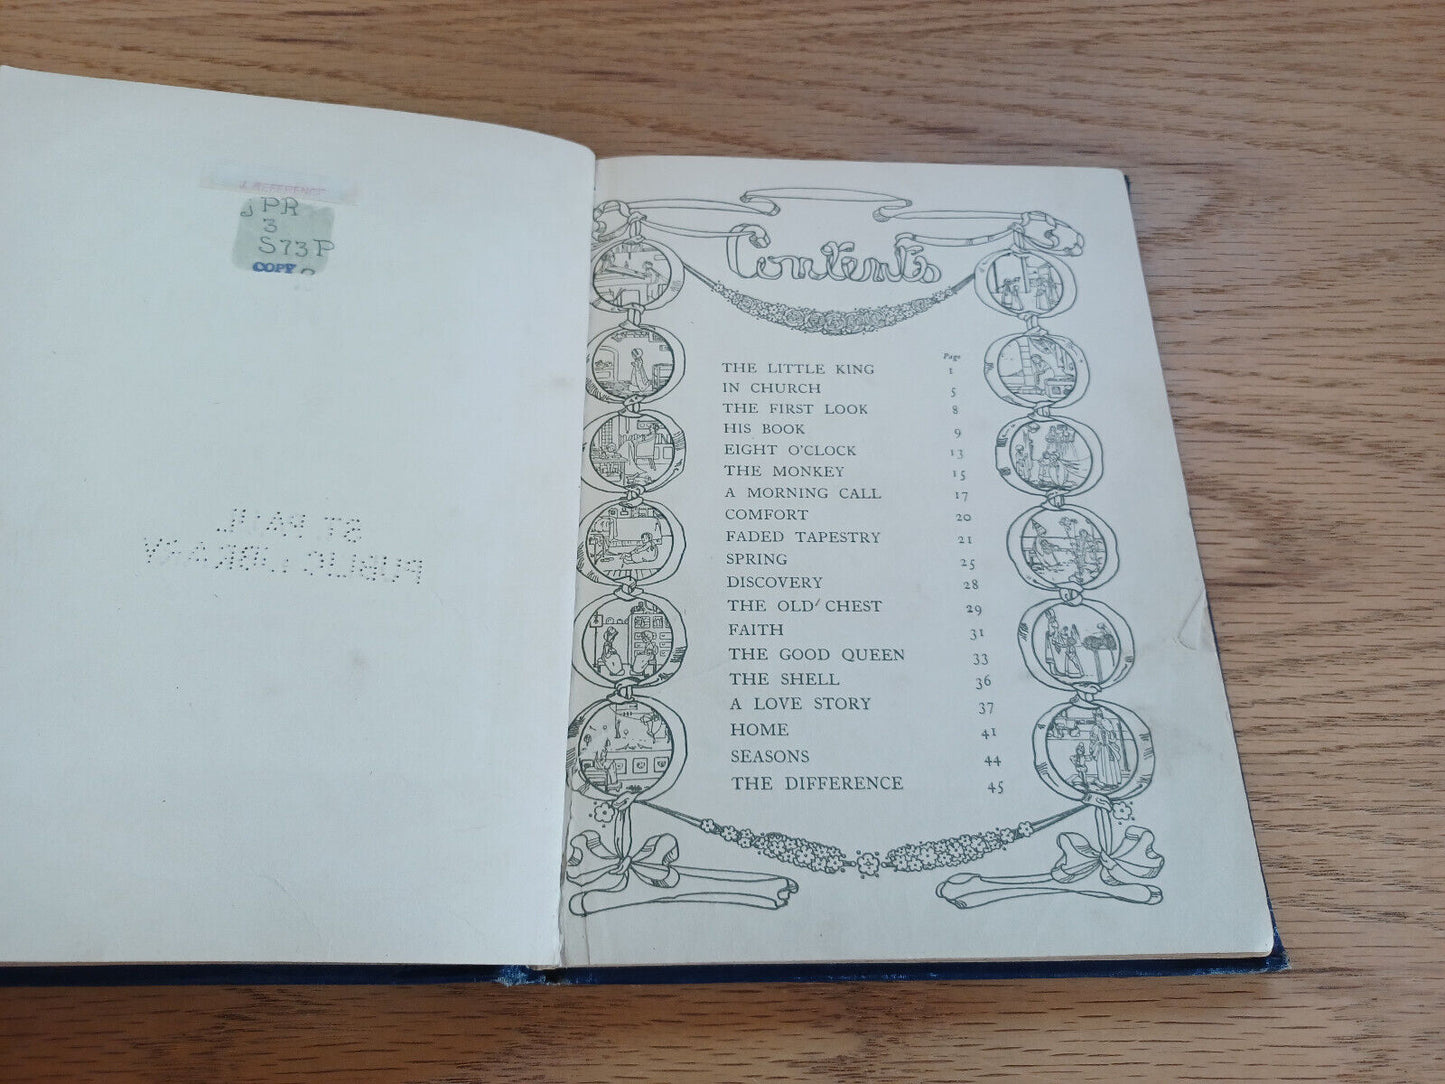 J. REFERENCE
J PR
3
S73P
COPY
ST. PAUL
PUBLIC LIBRARY
Contents
Page
THE LITTLE KING 1
IN CHURCH 5
THE FIRST LOOK 8
HIS BOOK 9
EIGHT O'CLOCK 13
THE MONKEY 15
A MORNING CALL 17
COMFORT 20
FADED TAPESTRY 21
SPRING 25
DISCOVERY 28
THE OLD CHEST 29
FAITH 31
THE GOOD QUEEN 33
THE SHELL 36
A LOVE STORY 37
HOME 41
SEASONS 44
THE DIFFERENCE 45